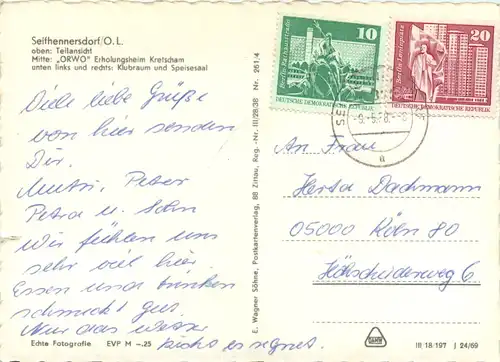 Seifhennersdorf/O. L.
oben: Teilansicht
Mitte: „ORWO" Erholungsheim Kretscham
unten links und rechts: Klubraum und Speisesaal
Viele liebe Grüße
von hier senden
Dir.
Mutti, Peter
Petra u. Sohn
Wir fühlen uns
sehr viel hier.
Essen und trinken
schmeckt gut.
Nur das Wetter
nichts
Echte Fotografie EVP M -.25
E. Wagner Söhne, Postkartenverlag, 88 Zittau, Reg.-Nr. III/28/36 Nr. 261/4
10
Berlin, Rathausstraße
DEUTSCHE DEMOKRATISCHE REPUBLIK
20
Berlin, Leninplatz
DEUTSCHE DEMOKRATISCHE REPUBLIK
a
An Frau
Herta Dachmann
05000 Köln 80
6
III 18 197 J 24/69